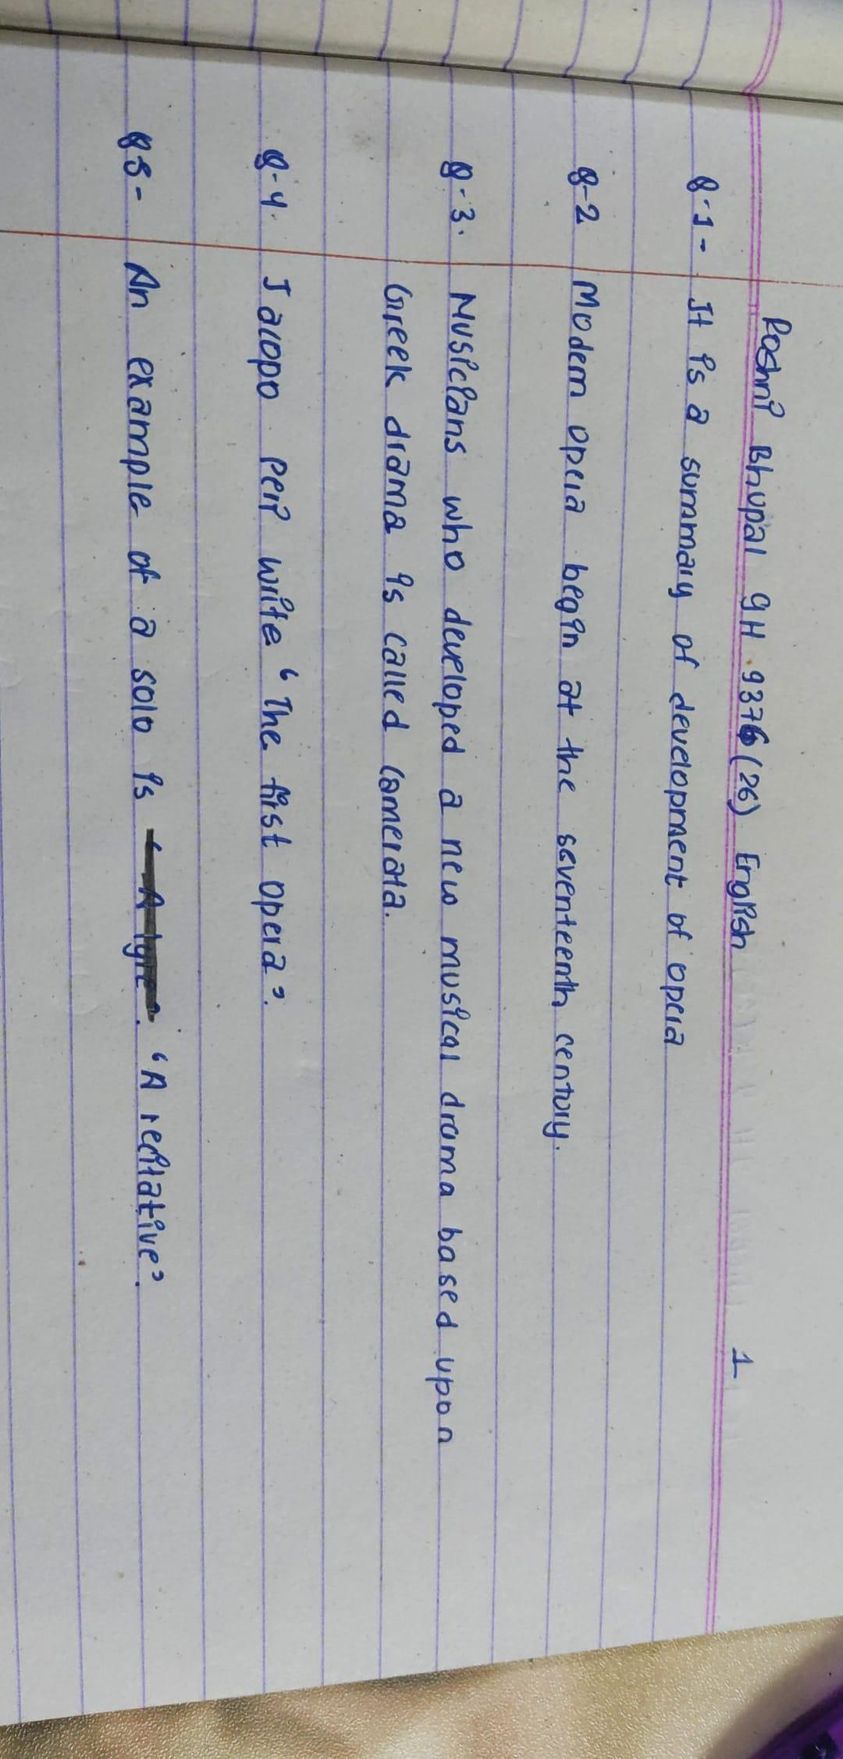 Roshni Bhupal 9H 9376 (26) English
1
Q-1- It is a summary of development of opera
Q-2 Modern opera begin at the seventeenth century.
Q-3. Musicians who developed a new musical drama based upon
Greek drama is called Camerata.
Q-4. Jacopo Peri write ‘The first opera’.
Q5- An example of a solo is ‘A lyre’. ‘A recitative’.